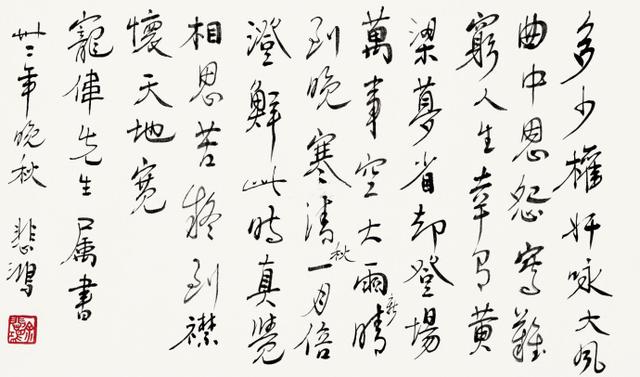 多少權奸咏大風
曲中恩怨寫難
窮人生幸有黃
粱夢省卻登場
萬事空大雨新晴
到晚寒清秋一月倍
澄鮮此時真覺
相思苦移到襟
懷天地寬
寵偉先生屬書
卅二年晚秋 悲鴻